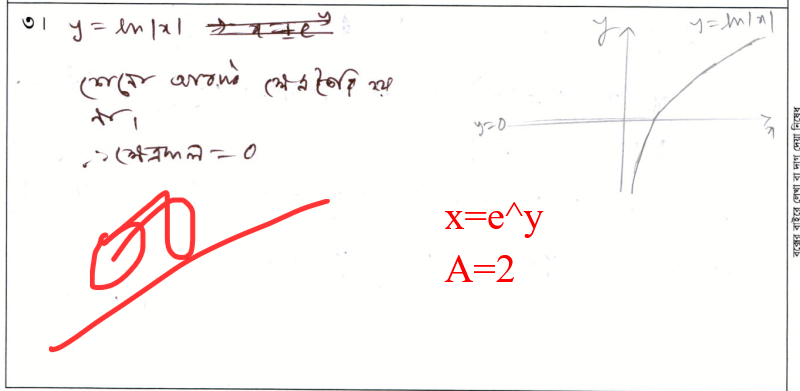 ৩। y = ln|x|
কোনো আবদ্ধ ক্ষেত্র তৈরি হয়
না।
∴ ক্ষেত্রফল = 0
y
y = ln|x|
y=0
x
x=e^y
A=2
বক্সের বাইরে লেখা বা দাগ দেয়া নিষেধ